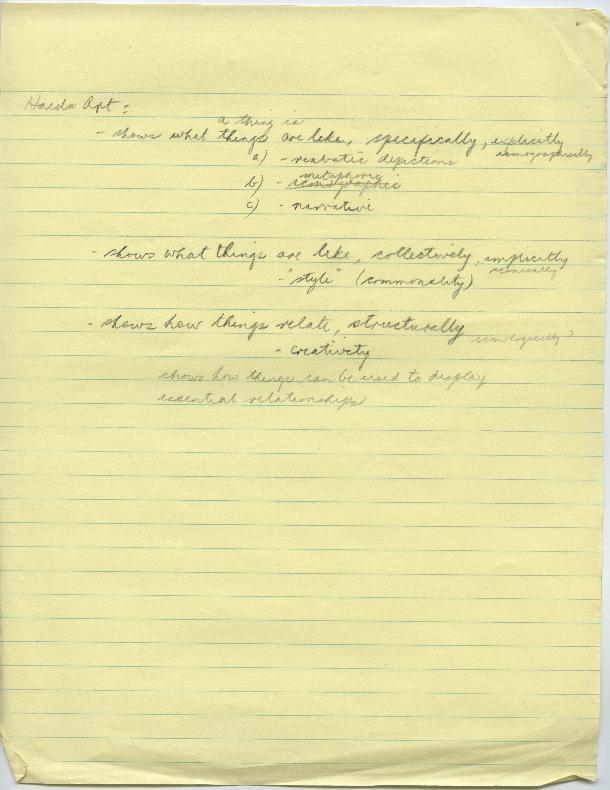 Haida Art:
a thing is
- shows what things are like, specifically, explicitly
iconographically
a) - realistic depictions
metaphoric
b) - iconographic
c) - narrative
- shows what things are like, collectively, implicitly
iconically
- "style" (commonality)
- shows how things relate, structurally
iconologically?
- creativity
shows how things can be used to display
essential relationships